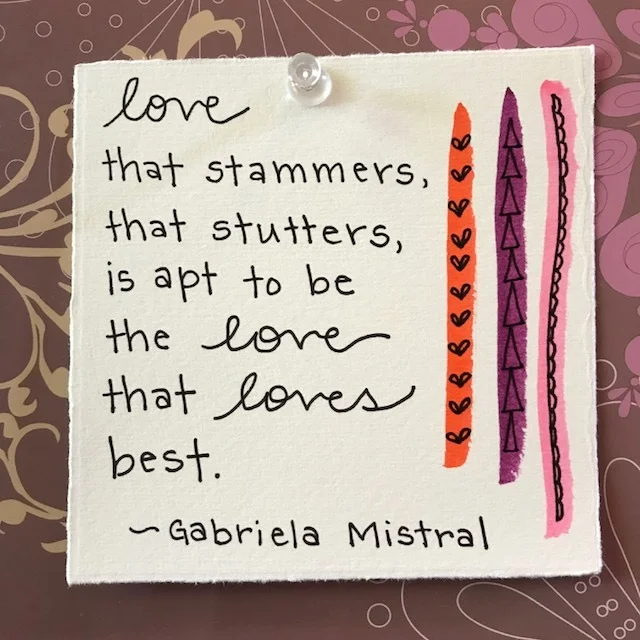 love
that stammers,
that stutters,
is apt to be
the love
that loves
best.
~Gabriela Mistral